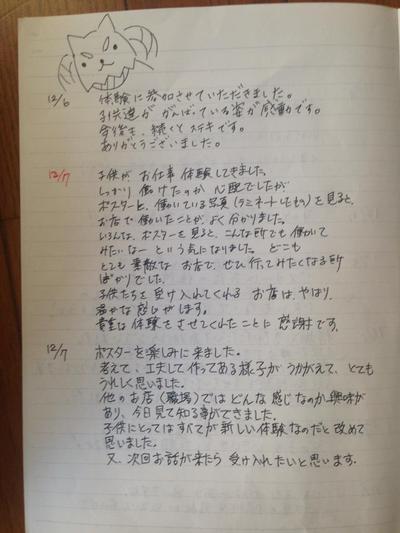 12/6 体験に参加させていただきました。
子供達が がんばっている姿が感動です。
今後も、続くとステキです。
ありがとうございました。
12/7 子供が お仕事体験してきました。
しっかり 働けたのか 心配でしたが
ポスターと、働いている写真(ラミネートしたもの)を見ると、
お店で働いたことが、よく分かりました。
いろんな、ポスターを見ると、こんな所でも 働いて
みたいなー という気になりました。どこも
とても 素敵な お店で、ぜひ行ってみたくなる所
ばかりでした。
子供たちを受け入れてくれる お店は、やはり、
温かな 感じがします。
貴重な体験をさせてくれたことに 感謝です。
12/7 ポスターを楽しみに来ました。
考えて、工夫して作ってある様子が うかがえて、とても
うれしく思いました。
他のお店(職場)では どんな感じなのか興味が
あり、今日見て知る事ができました。
子供にとってはすべてが新しい体験なのだと改めて
思いました。
又、次回お話が来たら 受け入れたいと思います。